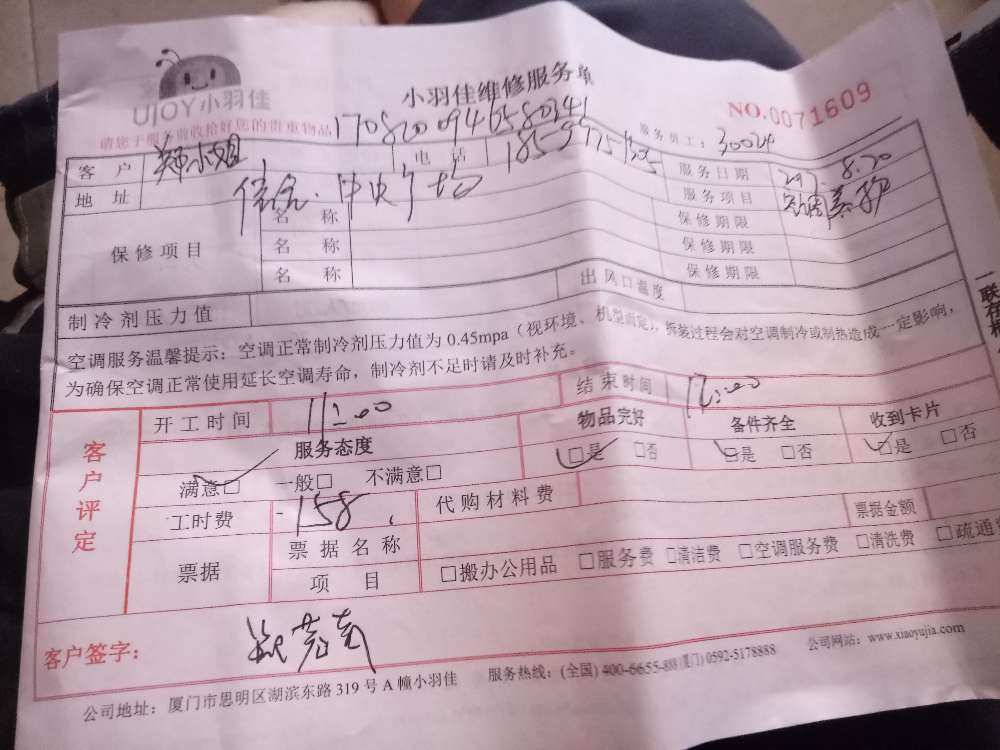 UJOY小羽佳
小羽佳维修服务单
NO.0071609
请您于服务前收拾好您的贵重物品
服务员工：30024
客户 郑小姐 电话 服务日期 8.20
地址 中央广场 服务项目
保修项目 名称 保修期限
名称 保修期限
名称 保修期限
制冷剂压力值 出风口温度
空调服务温馨提示：空调正常制冷剂压力值为0.45mpa（视环境、机型而定），拆装过程会对空调制冷或制热造成一定影响，
为确保空调正常使用延长空调寿命，制冷剂不足时请及时补充。
客户评定
开工时间 11:00 结束时间 12:00
服务态度 物品完好 备件齐全 收到卡片
满意□ 一般□ 不满意□ □是 □否 □是 □否 □是 □否
工时费 158 代购材料费
票据 票据名称 票据金额
项目 □搬办公用品 □服务费 □清洁费 □空调服务费 □清洗费 □疏通
客户签字：
公司地址：厦门市思明区湖滨东路319号A幢小羽佳 服务热线：(全国) 400-6655-888 (厦门) 0592-5178888 公司网站：www.xiaoyujia.com
一联在